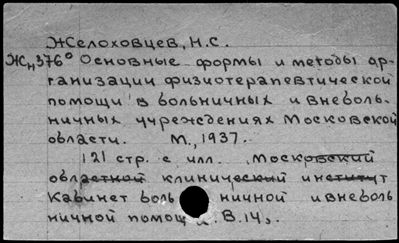 Желоховцев, Н.С.
Жн376° Основные формы и методы ор-
ганизации физиотерапевтической
помощи в больничных и внеболь-
ничных учреждениях Московской
области. М., 1937.
121 стр. с илл. Московский
областной клинический институт
Кабинет боль ничной и внеболь
ничной помощ . В.14,.